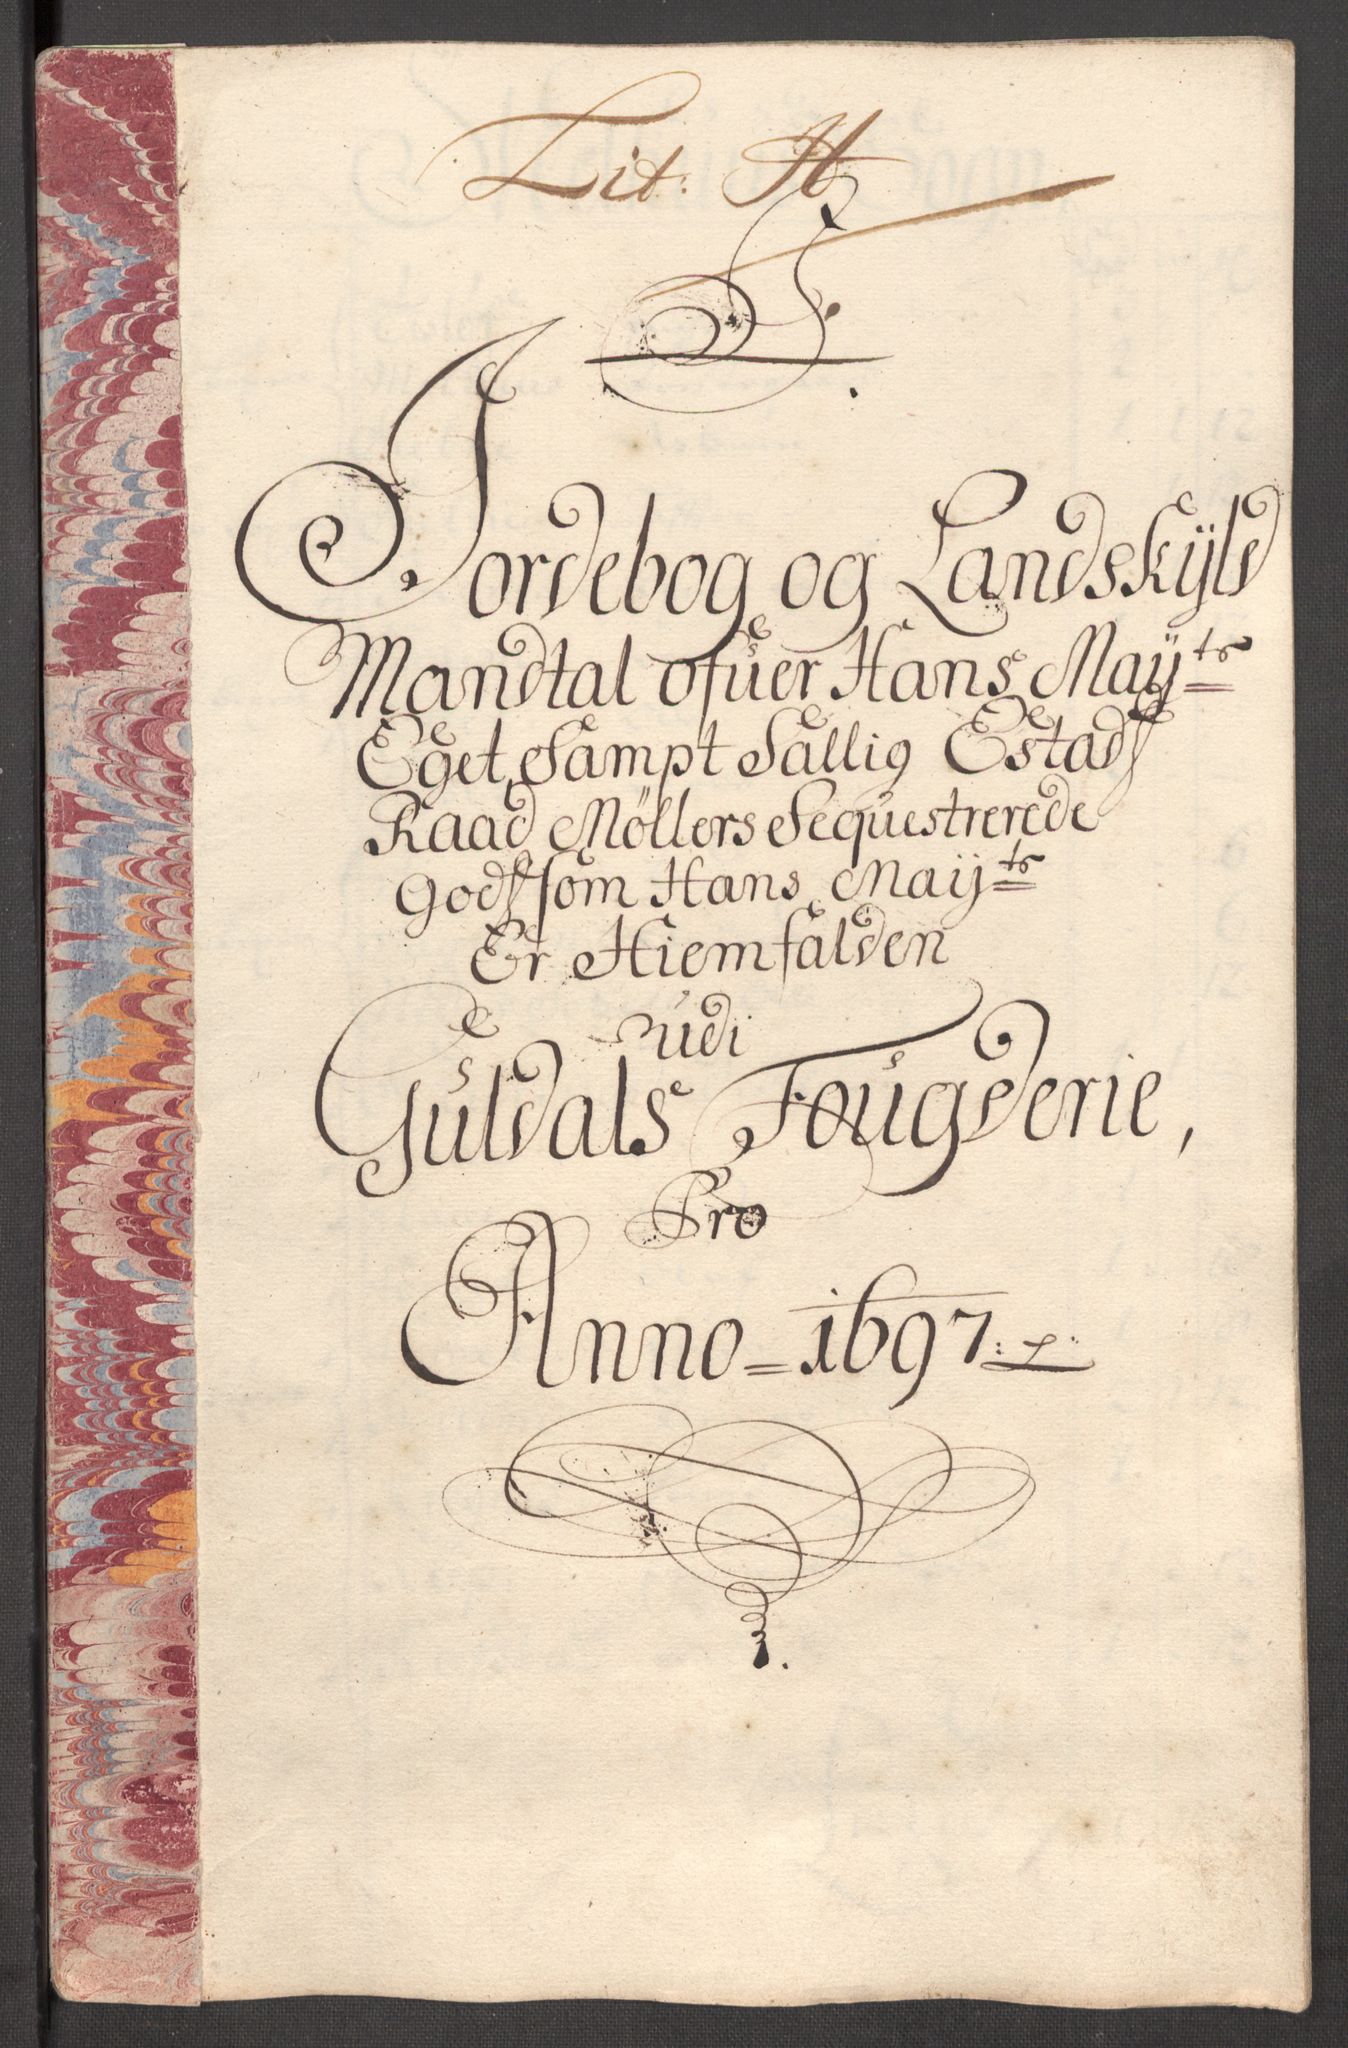 Lit: H
Jordebog og Landskÿld
Mandtal ofuer Hans Maÿ:ts
Eget, Sampt Sallig Estads
Raad Möllers Sequestrerede
Gods som Hans Maÿ:ts
Er Hiemfalden
udi
Guldals Fougderie,
Pro
Anno = 1697: